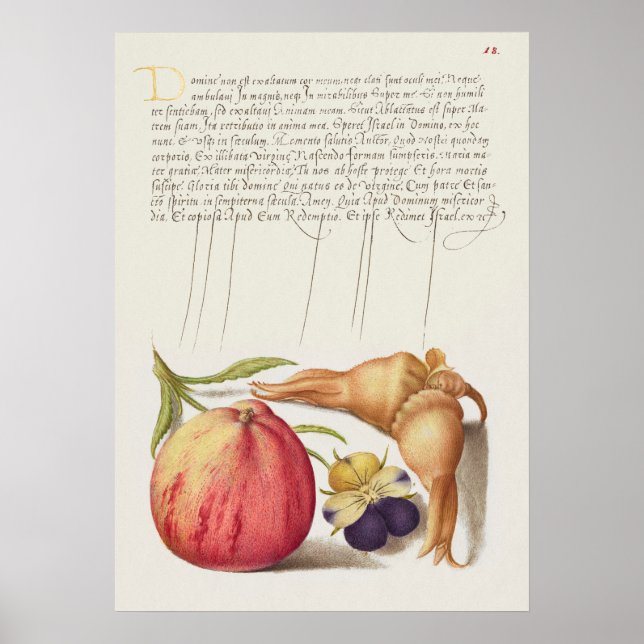 18.
Domine non est exaltatum cor meum, neqz elati sunt oculi mei. Neque
ambulavi In magnis, neqz In mirabilibus Super me. Si non humili
ter sentiebam, sed exaltavi Animam meam. Sicut Ablactatus est super Ma-
trem suam, Ita retributio in anima mea. Speret Israel in Domino, ex hoc
nunc. & Usqz in sæculum. Memento salutis Auctor, Quod Nostri quondam
corporis, Ex illibata virgine Nascendo formam sumpseris. Maria ma-
ter gratiæ, Mater misericordiæ, Tu nos ab hoste protege Et hora mortis
suscipe. Gloria tibi domine Qui natus es de virgine, Cum patre Et san-
cto spiritu in sempiterna sæcula. Amen. Quia Apud Dominum misericor
dia, Et copiosa Apud Eum Redemptio. Et ipse Redimet Israel, ex